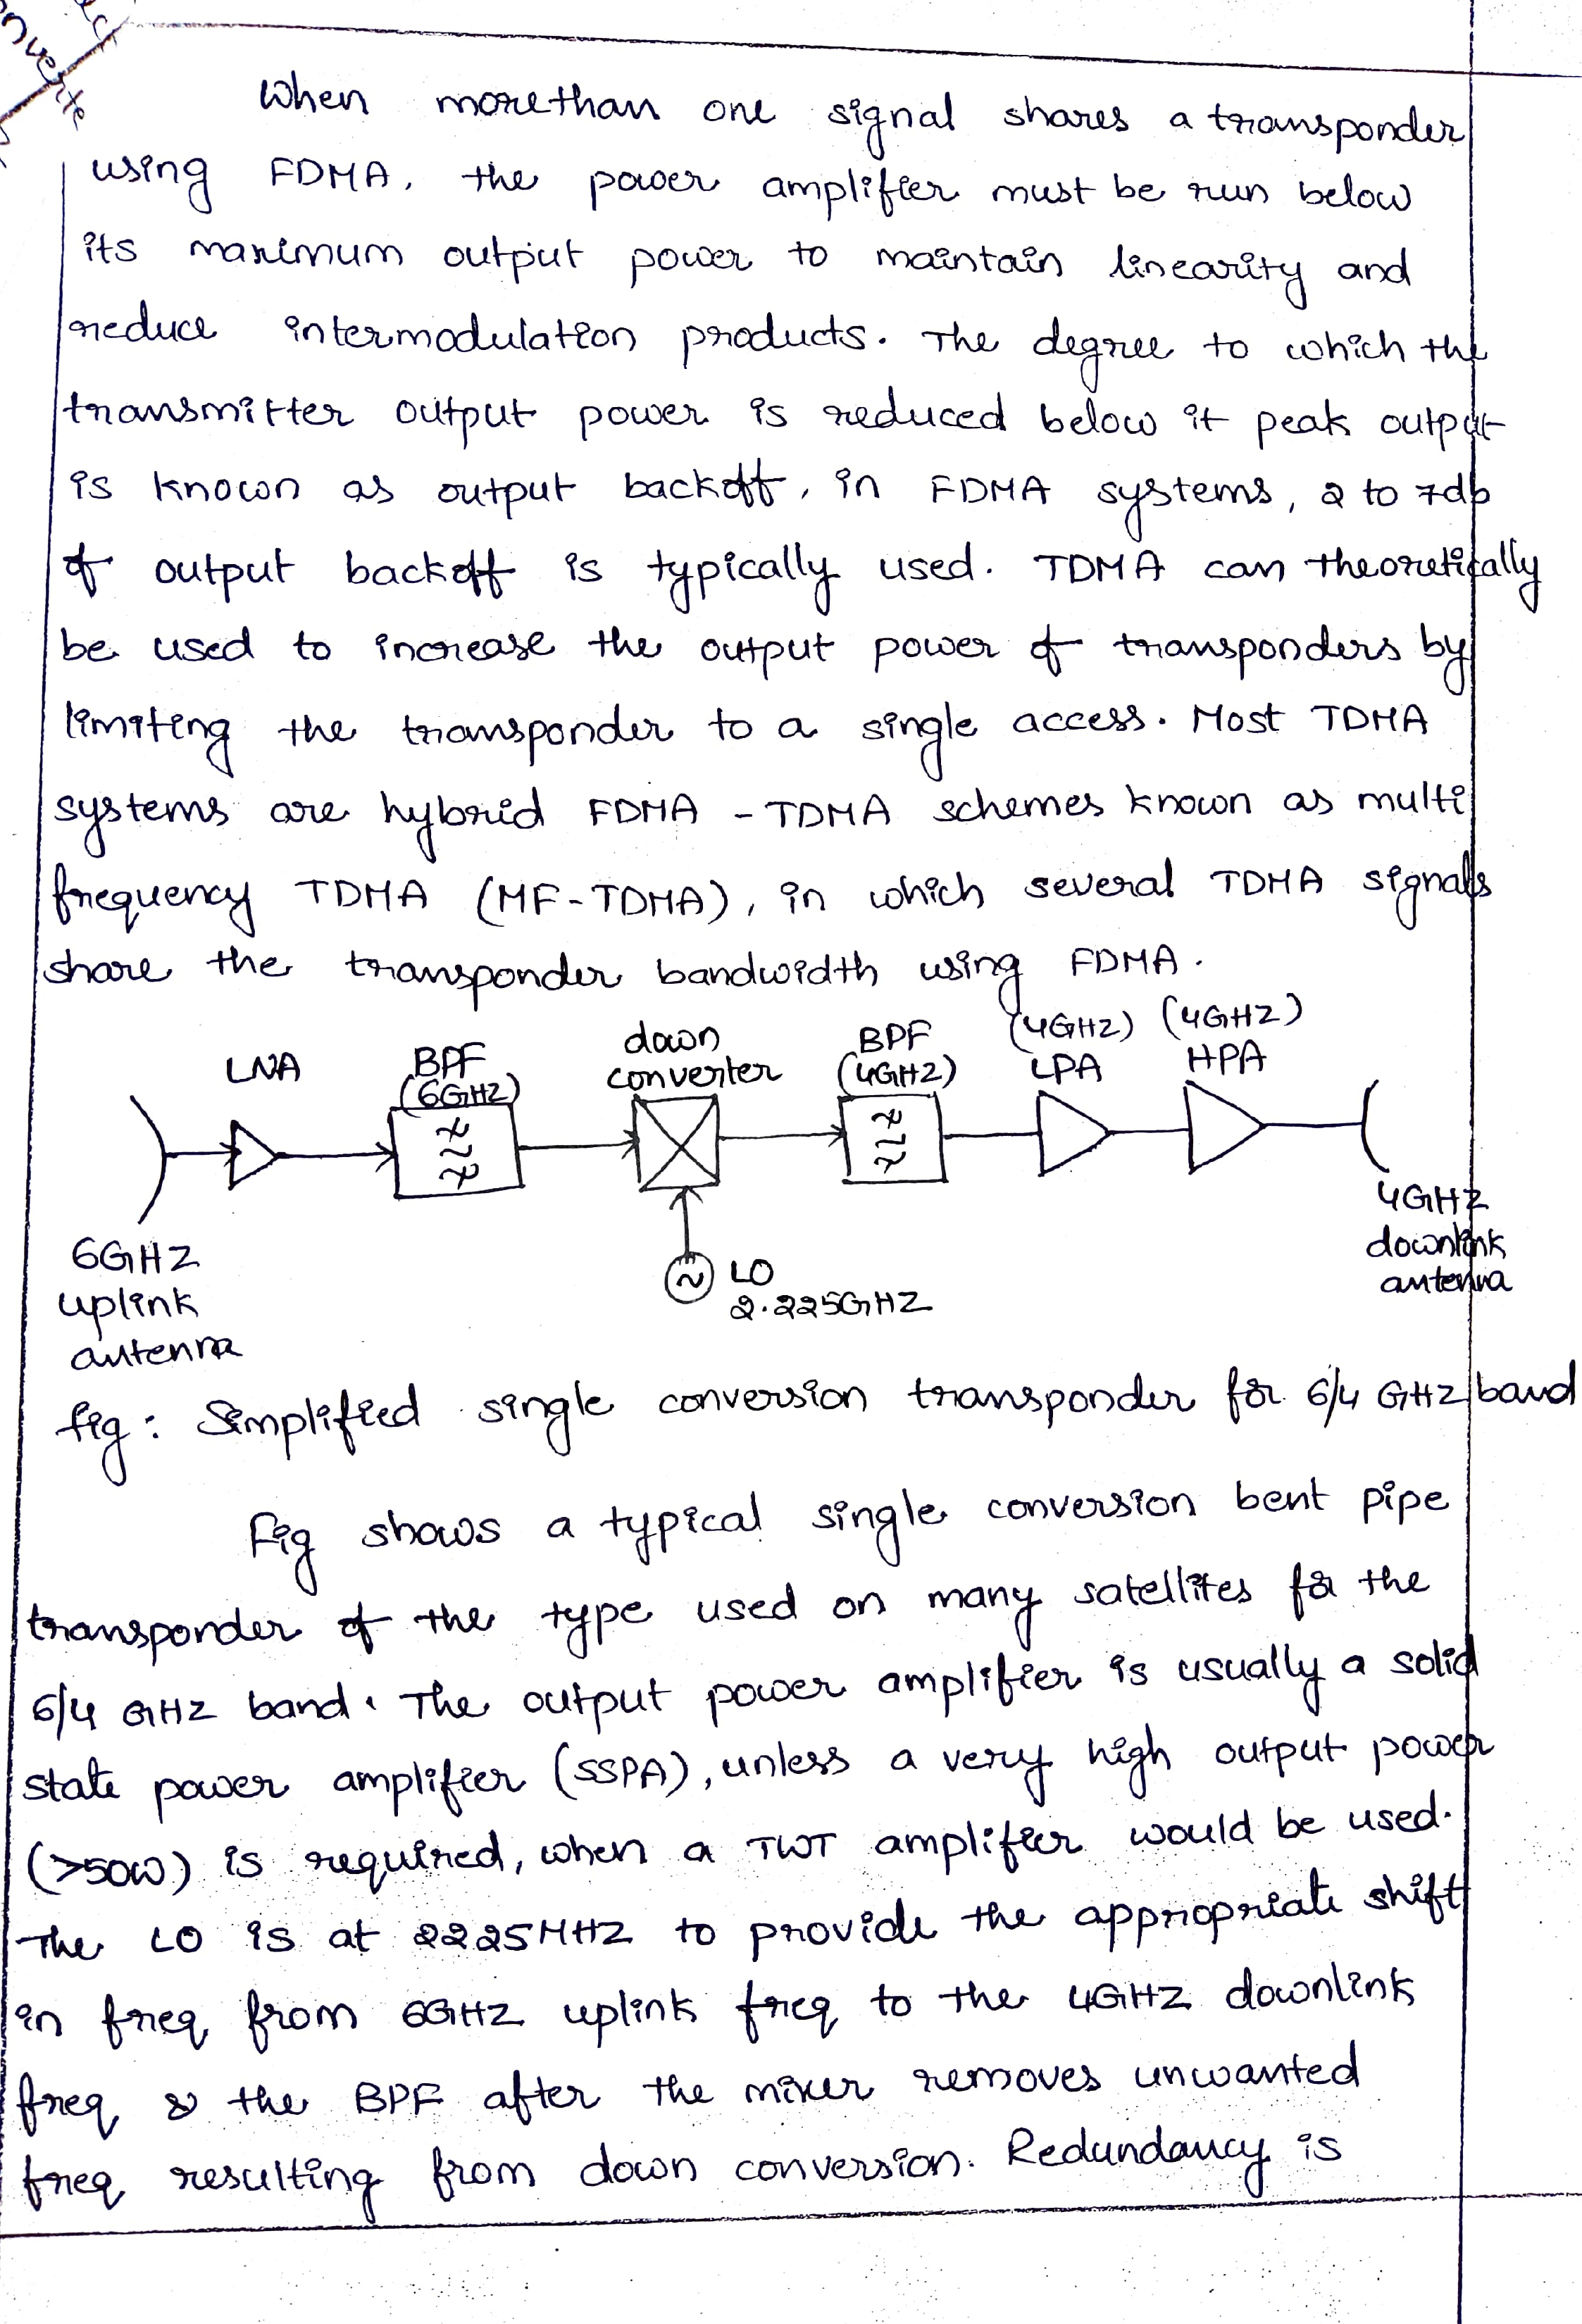 When morethan one signal shares a transponder
using FDMA, the power amplifier must be run below
its maximum output power to maintain linearity and
reduce intermodulation products. The degree to which the
transmitter output power is reduced below it peak output
is known as output backoff, in FDMA systems, 2 to 7db
of output backoff is typically used. TDMA can theoretically
be used to increase the output power of transponders by
limiting the transponder to a single access. Most TDMA
systems are hybrid FDMA - TDMA schemes known as multi
frequency TDMA (MF-TDMA), in which several TDMA signals
share the transponder bandwidth using FDMA.
LNA
BPF
(6GHZ)
down
converter
BPF
(4GHZ)
(4GHZ)
LPA
(4GHZ)
HPA
6GHZ
uplink
antenna
LO
2.225GHZ
4GHZ
downlink
antenna
fig: Simplified single conversion transponder for 6/4 GHZ band
Fig shows a typical single conversion bent pipe
transponder of the type used on many satellites for the
6/4 GHZ band. The output power amplifier is usually a solid
state power amplifier (SSPA), unless a very high output power
(>50W) is required, when a TWT amplifier would be used.
The LO is at 2225MHZ to provide the appropriate shift
in freq from 6GHZ uplink freq to the 4GHZ downlink
freq & the BPF after the mixer removes unwanted
freq resulting from down conversion. Redundancy is